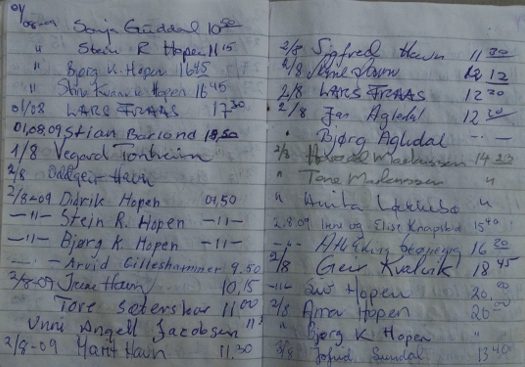 01/08-09 Sonja Guddal 10 50
" Stein R Hopen 11 15
" Bjørg K. Hopen 16 45
" Hopen 16 45
01/08 LARS TRAAS 17 30
01.08.09 Stian Barland 18.50
1/8 Vegard Tonheim
2/8 Oddgeir Havn
2/8-09 Didrik Hopen 01,50
—11— Stein R. Hopen —11—
—11— Bjørg K Hopen —11—
—.— Arvid Gilleshammer 9.50
2/8-09 Irene Havn 10.15
Tore Sæterskar 11 00
Unni Angell Jacobsen 11
2/8-09 Marit Havn 11.30
2/8 Sigfred Havn 11 30
2/8 12
2/8 LARS TRAAS 12 30
2/8 Jan Agledal 12 30
" Bjørg Agledal —.—
2/8 Harald Markussen 14 23
" Tone Markussen "
" Anita "
2.8.09 Inny og Elise Knapstad 15 40
—.— 16 20
2/8 Geir Kvalvik 18 45
—11— Hopen 20.00
2/8 Anna Hopen 20.00
" Bjørg K Hopen "
3/8 Sundal 13 40